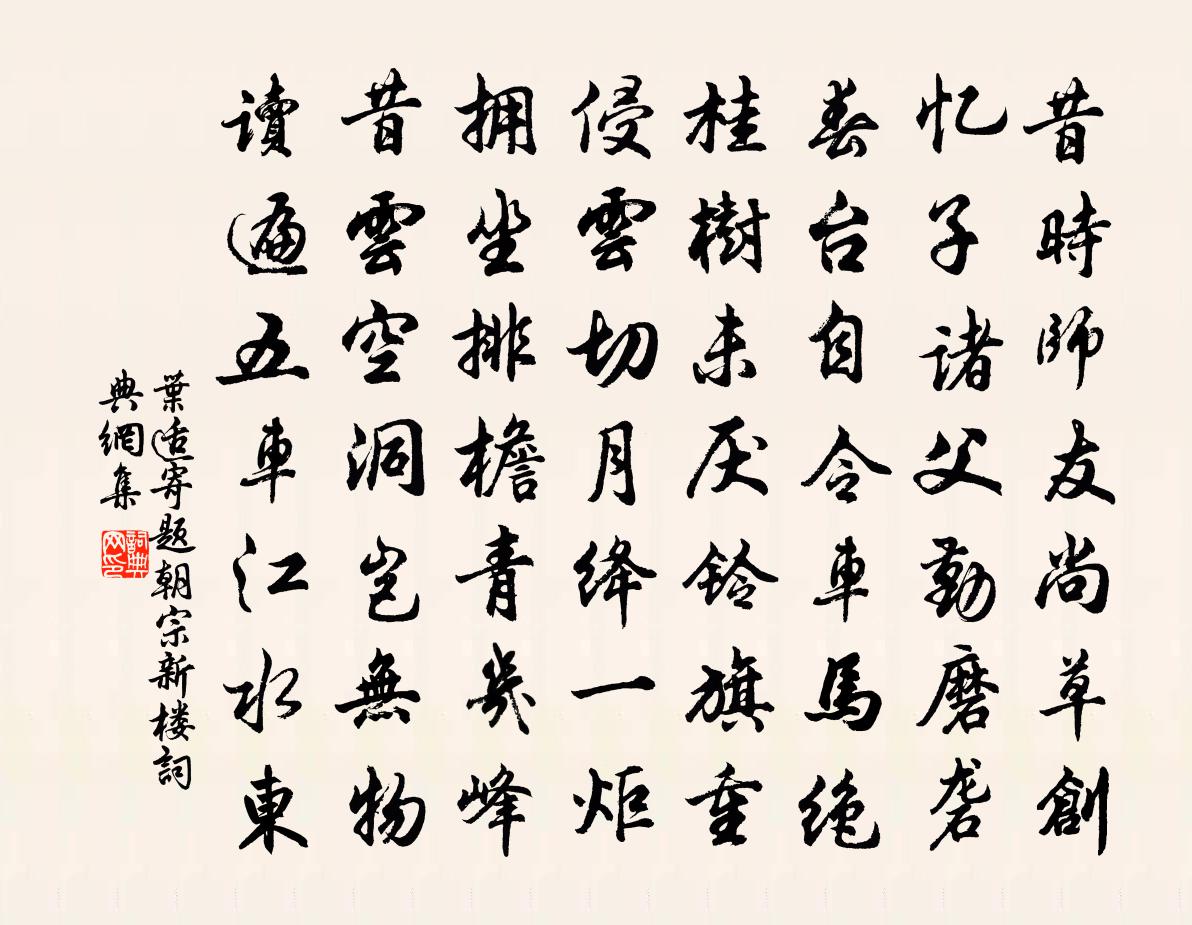 昔時師友尚草創
忆子諸父勤磨砻
春台自令車馬绝
桂樹未厌鈴旗重
侵雲切月绛一炬
拥坐排檐青幾峰
昔雲空洞岂無物
讀遍五車江水東
葉适寄題朝宗新楼詞
典網集
詞典网印